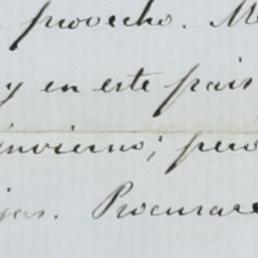 provecho. M
y en este pais
invierno; pero
jas. Procurare